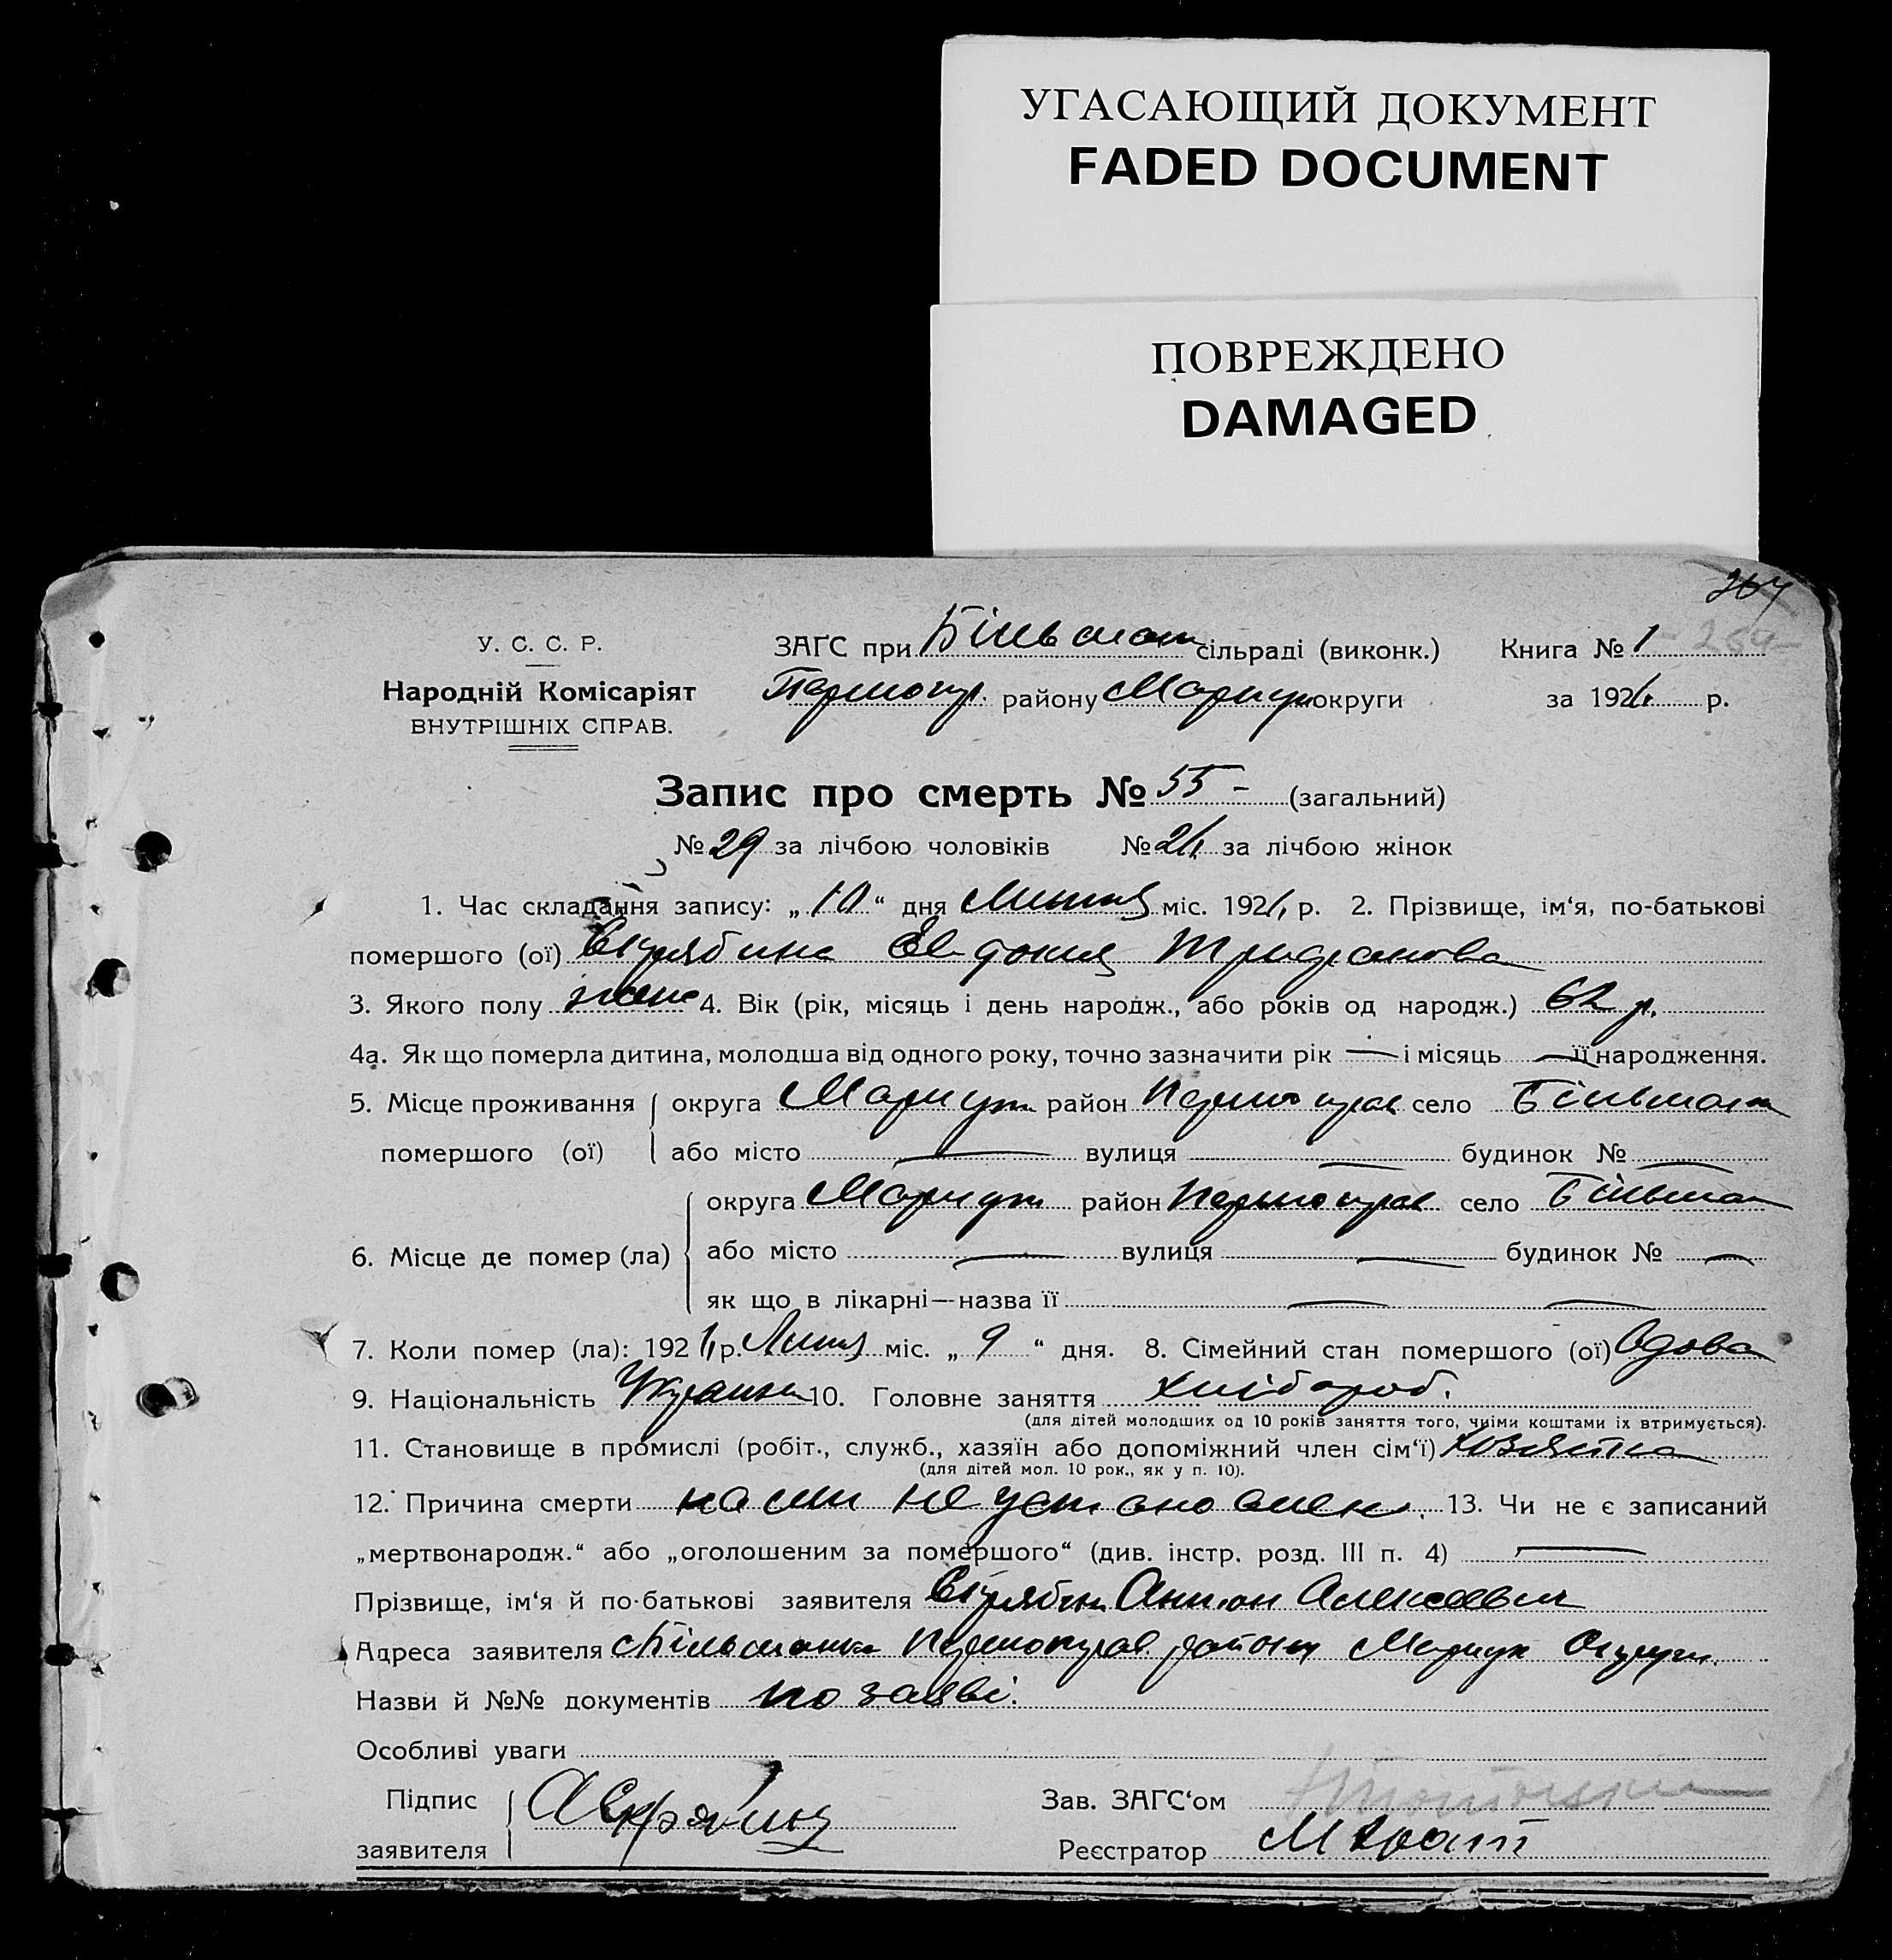 УГАСАЮЩИЙ ДОКУМЕНТ
FADED DOCUMENT
ПОВРЕЖДЕНО
DAMAGED
264
254
У. С. С. Р.
ЗАГС при Більман сільраді (виконк.) Книга № 1
Народній Комісаріят
Першотр. району Маріуп округи за 1924 р.
ВНУТРІШНІХ СПРАВ.
Запис про смерть № 55 - (загальний)
№ 29 за лічбою чоловіків № 24 за лічбою жінок
1. Час складання запису: „ 10 “ дня Липня міс. 1924 р. 2. Прізвище, ім‘я, по-батькові
помершого (ої) Скрябина Евдокия
3. Якого полу жін 4. Вік (рік, місяць і день народж., або років од народж.) 62 р.
4а. Як що померла дитина, молодша від одного року, точно зазначити рік — і місяць — її народження.
5. Місце проживання округа Маріуп район село Більман
помершого (ої) або місто — вулиця — будинок № —
округа Маріуп район село Більман
6. Місце де помер (ла) або місто — вулиця — будинок № —
як що в лікарні—назва її — —
7. Коли помер (ла): 1924 р. Липня міс. „ 9 “ дня. 8. Сімейний стан помершого (ої) Удова
9. Національність Украин 10. Головне заняття хлібороб.
(для дітей молодших од 10 років заняття того, чиїми коштами їх втримується).
11. Становище в промислі (робіт., служб., хазяїн або допоміжний член сім‘ї) Хозяйка
(для дітей мол. 10 рок., як у п. 10).
12. Причина смерти нами не установлен. 13. Чи не є записаний
„мертвонародж.“ або „оголошеним за помершого“ (див. інстр. розд. III п. 4) —
Прізвище, ім‘я й по-батькові заявителя Скрябин Антон Алексеевич
Адреса заявителя сБільманка района Мариуп Округи
Назви й №№ документів по заяві.
Особливі уваги
Підпис Зав. ЗАГС‘ом
заявителя АСкрябин Реєстратор